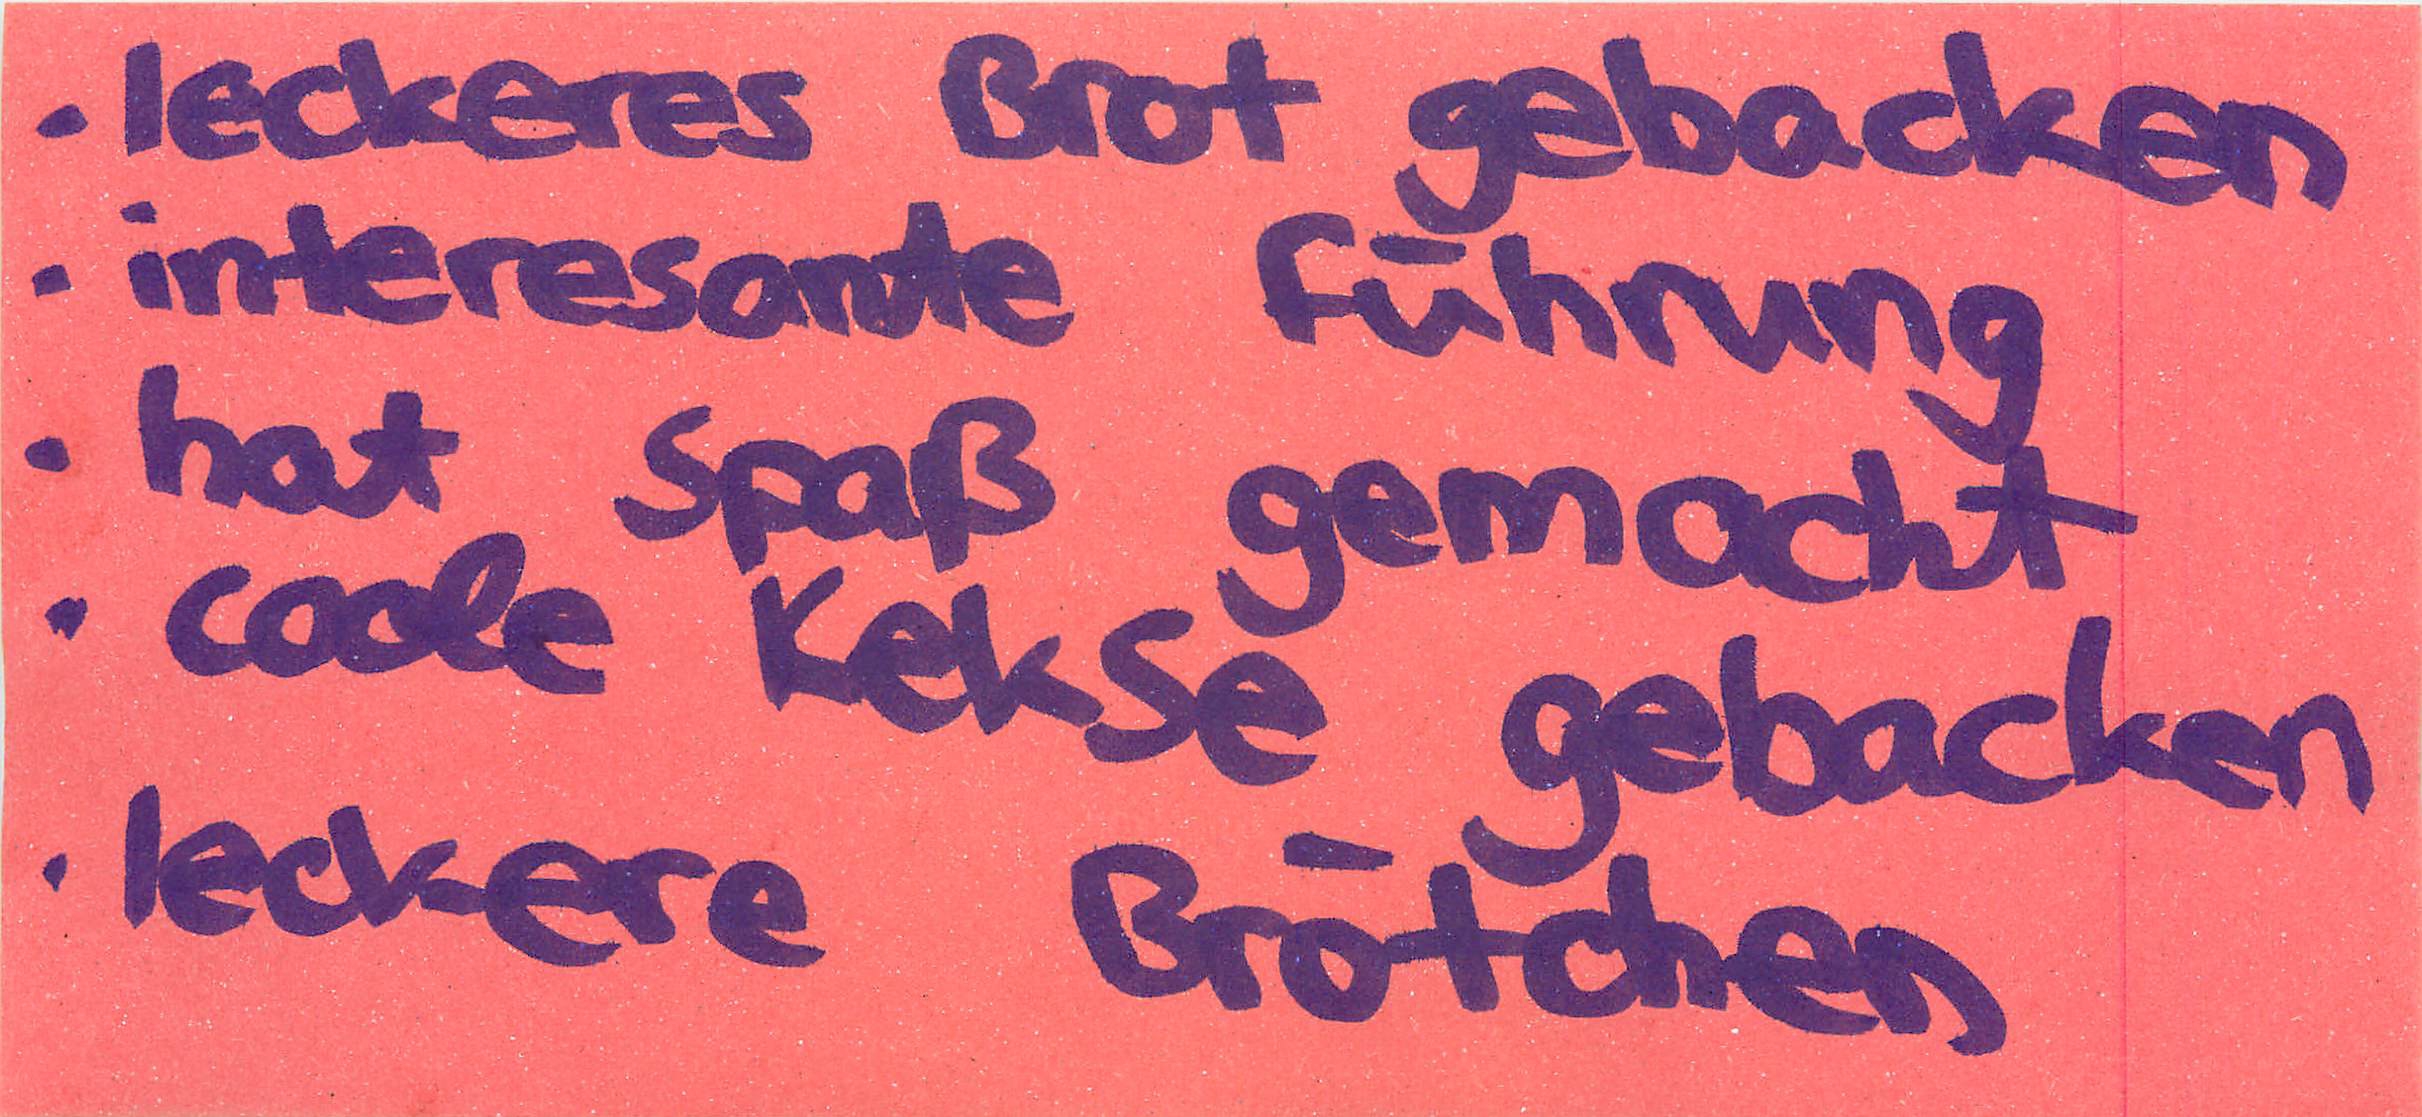 · leckeres Brot gebacken
· interesante Führung
· hat Spaß gemacht
· coole Kekse gebacken
· leckere Brötchen